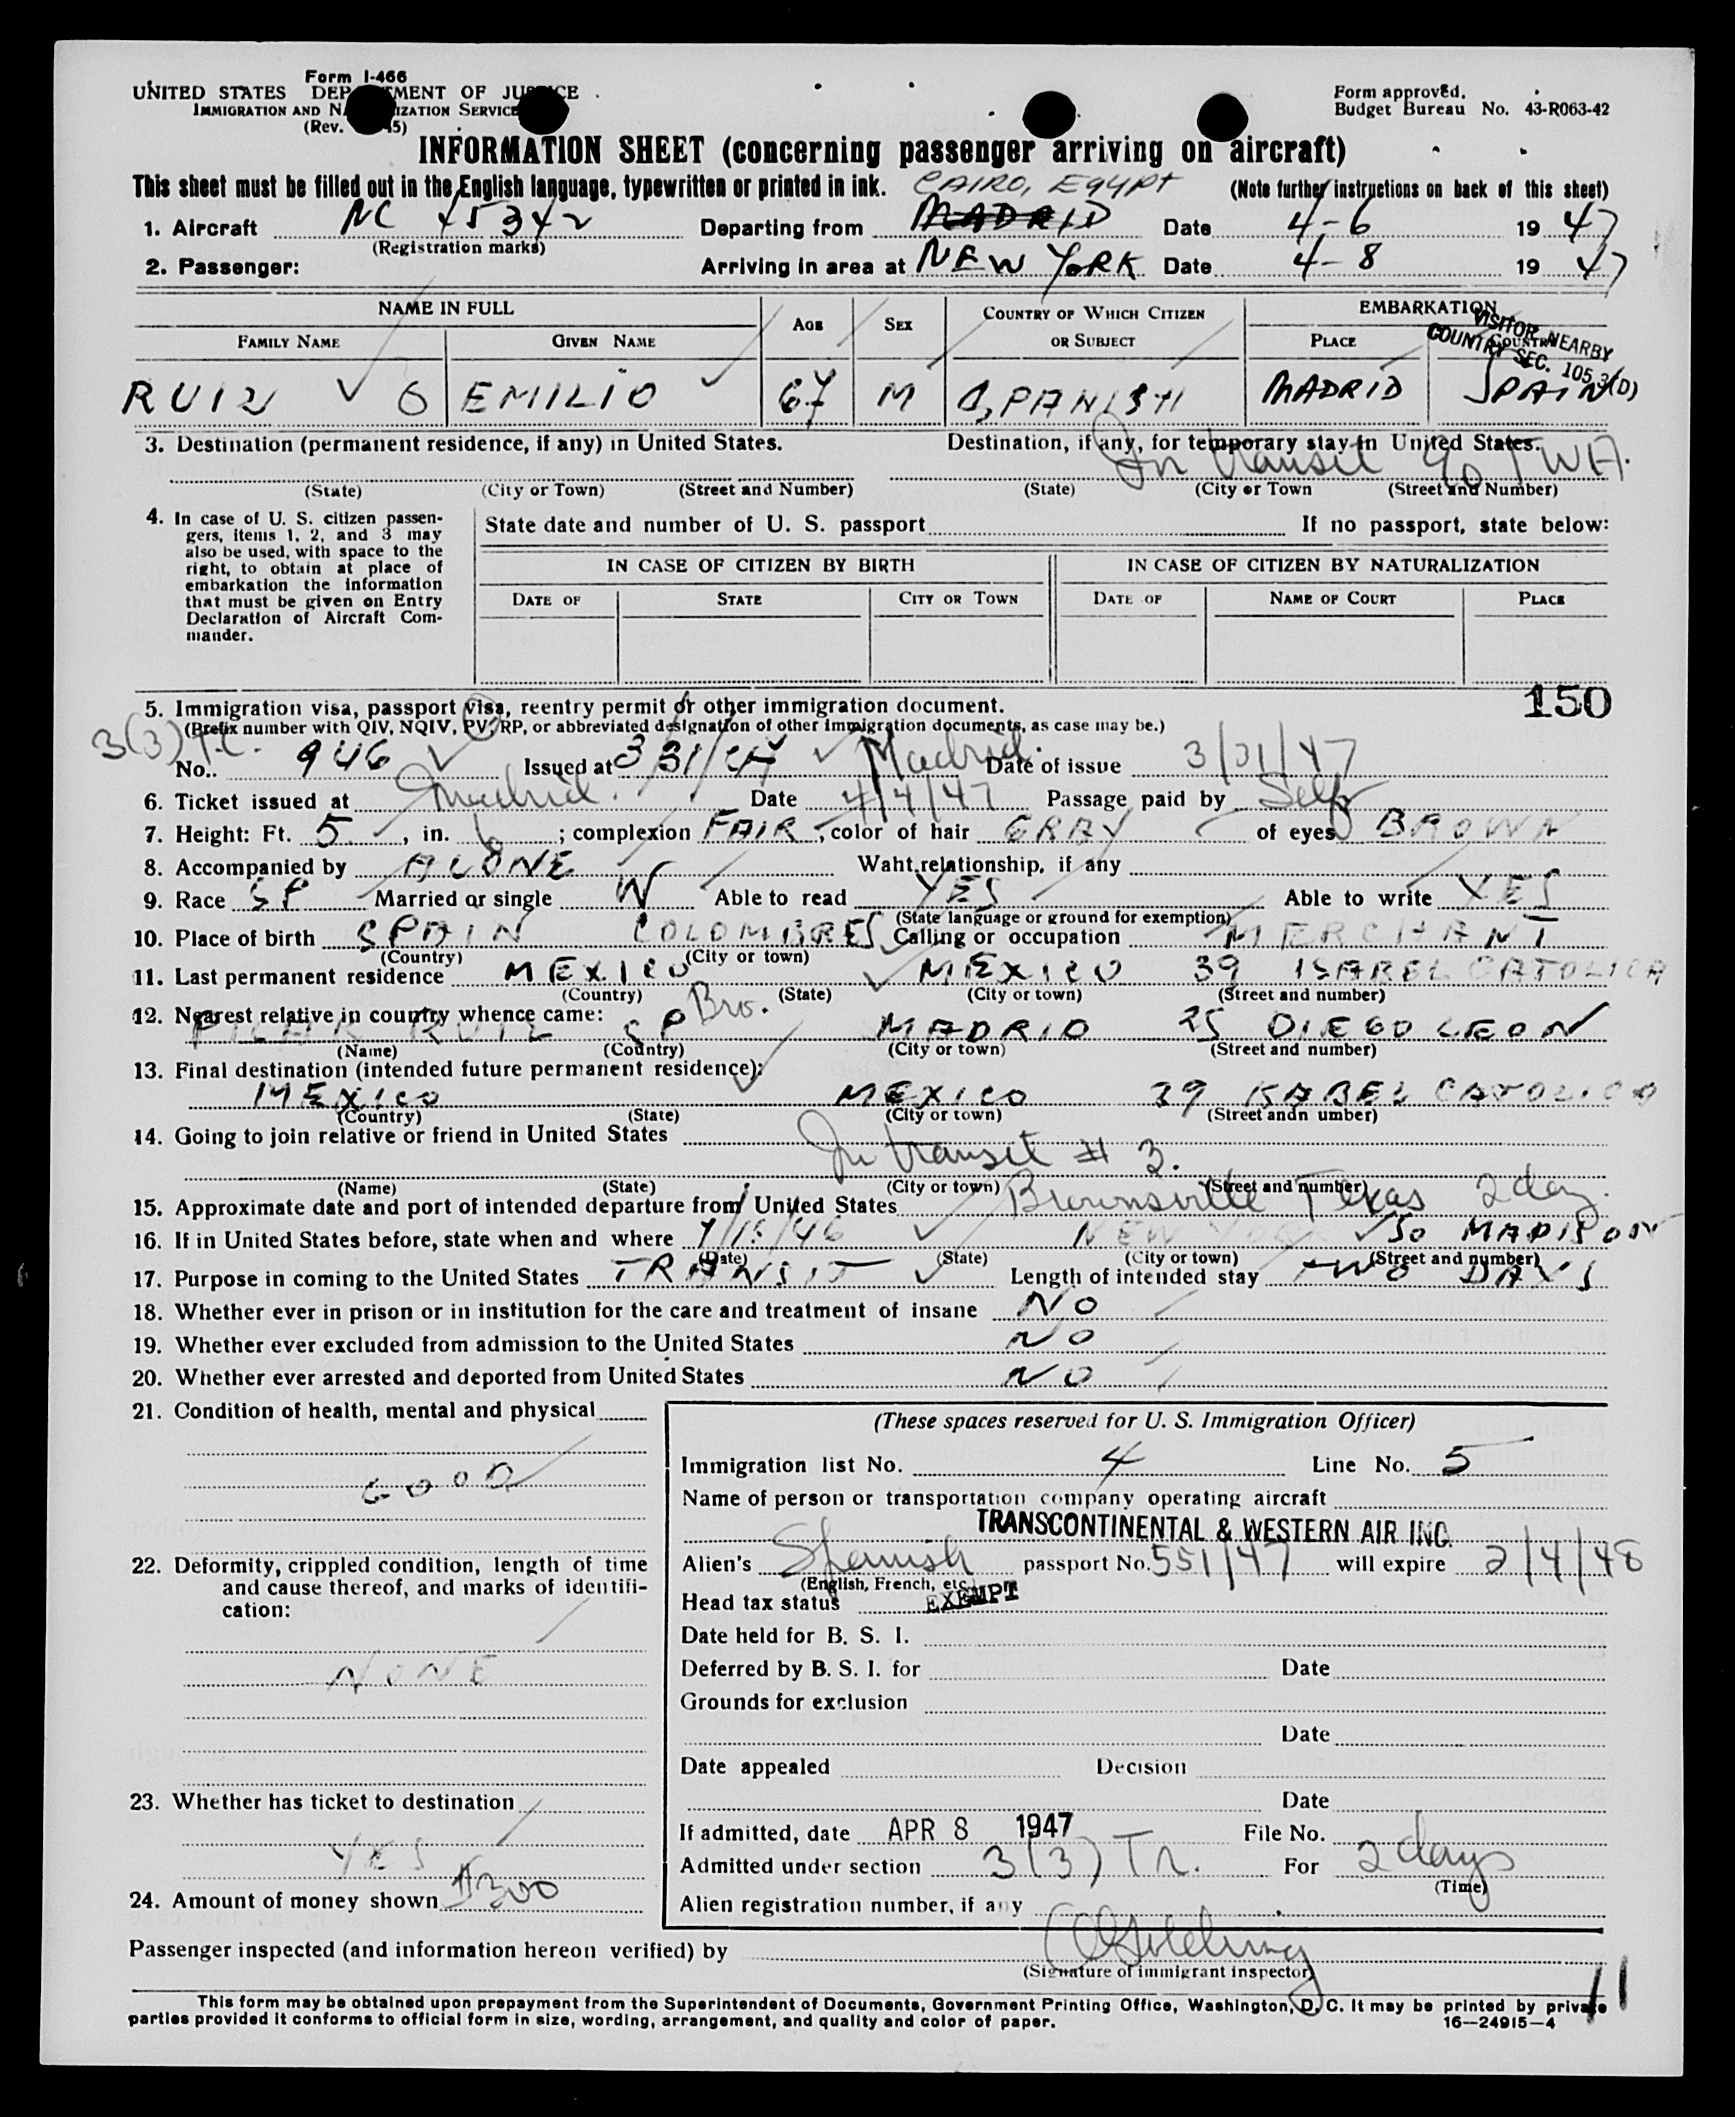 Form I-466
UNITED STATES DEP MENT OF JU CE
IMMIGRATION AND N IZATION SERVICE
(Rev. 5)
Form approved.
Budget Bureau No. 43-R063-42
INFORMATION SHEET (concerning passenger arriving on aircraft)
This sheet must be filled out in the English language, typewritten or printed in ink. CAIRO, EGYPT (Note further instructions on back of this sheet)
1. Aircraft NC 45342 Departing from MADRID Date 4-6 1947
(Registration marks)
2. Passenger: Arriving in area at NEW YORK Date 4-8 1947
NAME IN FULL AGE SEX COUNTRY OF WHICH CITIZEN OR SUBJECT EMBARKATION
FAMILY NAME GIVEN NAME PLACE COUNTRY
VISITOR NEARBY
COUNTRY SEC. 105.3(D)
RUIZ 6 EMILIO 67 M SPANISH MADRID SPAIN
3. Destination (permanent residence, if any) in United States. Destination, if any, for temporary stay in United States.
In transit c/o TWA.
(State) (City or Town) (Street and Number) (State) (City or Town (Street and Number)
4. In case of U. S. citizen passen-
gers, items 1, 2, and 3 may
also be used, with space to the
right, to obtain at place of
embarkation the information
that must be given on Entry
Declaration of Aircraft Com-
mander.
State date and number of U. S. passport If no passport, state below:
IN CASE OF CITIZEN BY BIRTH IN CASE OF CITIZEN BY NATURALIZATION
DATE OF STATE CITY OR TOWN DATE OF NAME OF COURT PLACE
150
5. Immigration visa, passport visa, reentry permit or other immigration document.
(Prefix number with QIV, NQIV, PV, RP, or abbreviated designation of other immigration documents, as case may be.)
3(3) T.C.
No.. 946 Issued at 3/31/47 Madrid. Date of issue 3/31/47
6. Ticket issued at Madrid. Date 4/4/47 Passage paid by Self
7. Height: Ft. 5, in. 6; complexion FAIR, color of hair GRAY of eyes BROWN
8. Accompanied by ALONE Waht relationship, if any
9. Race SP Married or single W Able to read YES Able to write YES
(State language or ground for exemption)
10. Place of birth SPAIN COLOMBRES Calling or occupation MERCHANT
(Country) (City or town)
11. Last permanent residence MEXICO MEXICO 39 ISABEL CATOLICA
(Country) (State) (City or town) (Street and number)
12. Nearest relative in country whence came: Bro.
PILAR RUIZ SP MADRID 25 DIEGO LEON
(Name) (Country) (City or town) (Street and number)
13. Final destination (intended future permanent residence):
MEXICO MEXICO 39 ISABEL CATOLICO
(Country) (State) (City or town) (Street andn umber)
14. Going to join relative or friend in United States
In transit # 3.
(Name) (State) (City or town) (Street and number)
15. Approximate date and port of intended departure from United States Brownsville Texas 2 day.
16. If in United States before, state when and where 46 NEW YORK 50 MADISON
(Date) (State) (City or town) (Street and number)
17. Purpose in coming to the United States TRANSIT Length of intended stay TWO DAYS
18. Whether ever in prison or in institution for the care and treatment of insane NO
19. Whether ever excluded from admission to the United States NO
20. Whether ever arrested and deported from United States NO
21. Condition of health, mental and physical
GOOD
22. Deformity, crippled condition, length of time
and cause thereof, and marks of identifi-
cation:
NONE
23. Whether has ticket to destination
YES
24. Amount of money shown $300
(These spaces reserved for U. S. Immigration Officer)
Immigration list No. 4 Line No. 5
Name of person or transportation company operating aircraft
TRANSCONTINENTAL & WESTERN AIR INC.
Alien's Spanish passport No. 551/47 will expire 2/4/48
(English, French, etc.)
Head tax status EXEMPT
Date held for B. S. I.
Deferred by B. S. I. for Date
Grounds for exclusion
Date
Date appealed Decision
Date
If admitted, date APR 8 1947 File No.
Admitted under section 3(3) Tr. For 2 days
(Time)
Alien registration number, if any
Passenger inspected (and information hereon verified) by
(Signature of immigrant inspector)
11
This form may be obtained upon prepayment from the Superintendent of Documents, Government Printing Office, Washington, D. C. It may be printed by private
parties provided it conforms to official form in size, wording, arrangement, and quality and color of paper. 16—24915-4